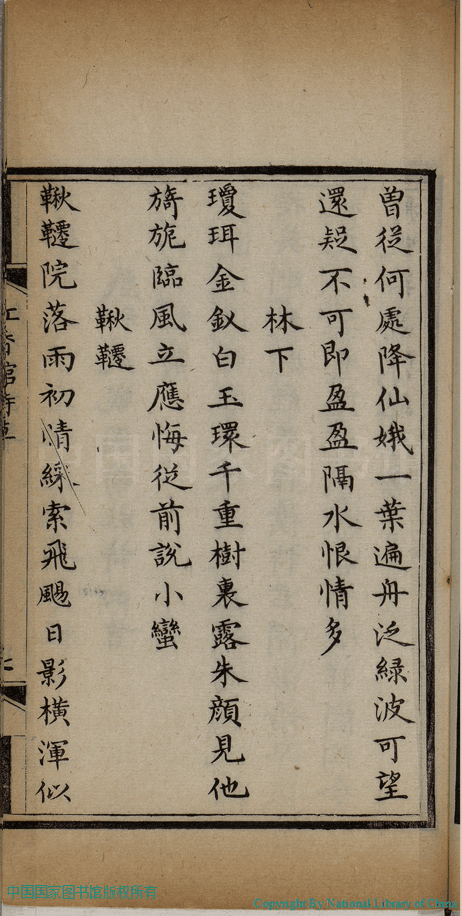 曾從何處降仙娥一葉遍舟泛緑波可望
還疑不可即盈盈隔水恨情多
林下
瓊珥金釵白玉環千重樹裏露朱顔見他
旖旎臨風立應悔從前說小蠻
鞦韆
鞦韆院落雨初情綵索飛颺日影橫渾似
中国国家图书馆版权所有
Copyright By National Library of China